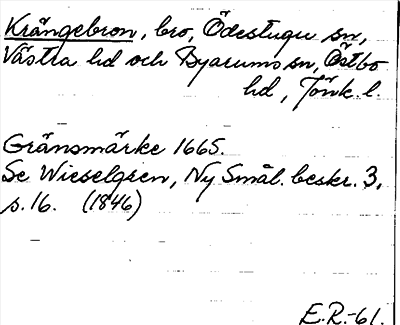 Krängebron, bro, Ödestugu sn,
Västra hd och Byarums sn, Östbo
hd, Jönk. l.
Gränsmärke 1665.
Se Wieselgren, Ny Smål. beskr. 3,
s. 16. (1846)
E.R.-61.